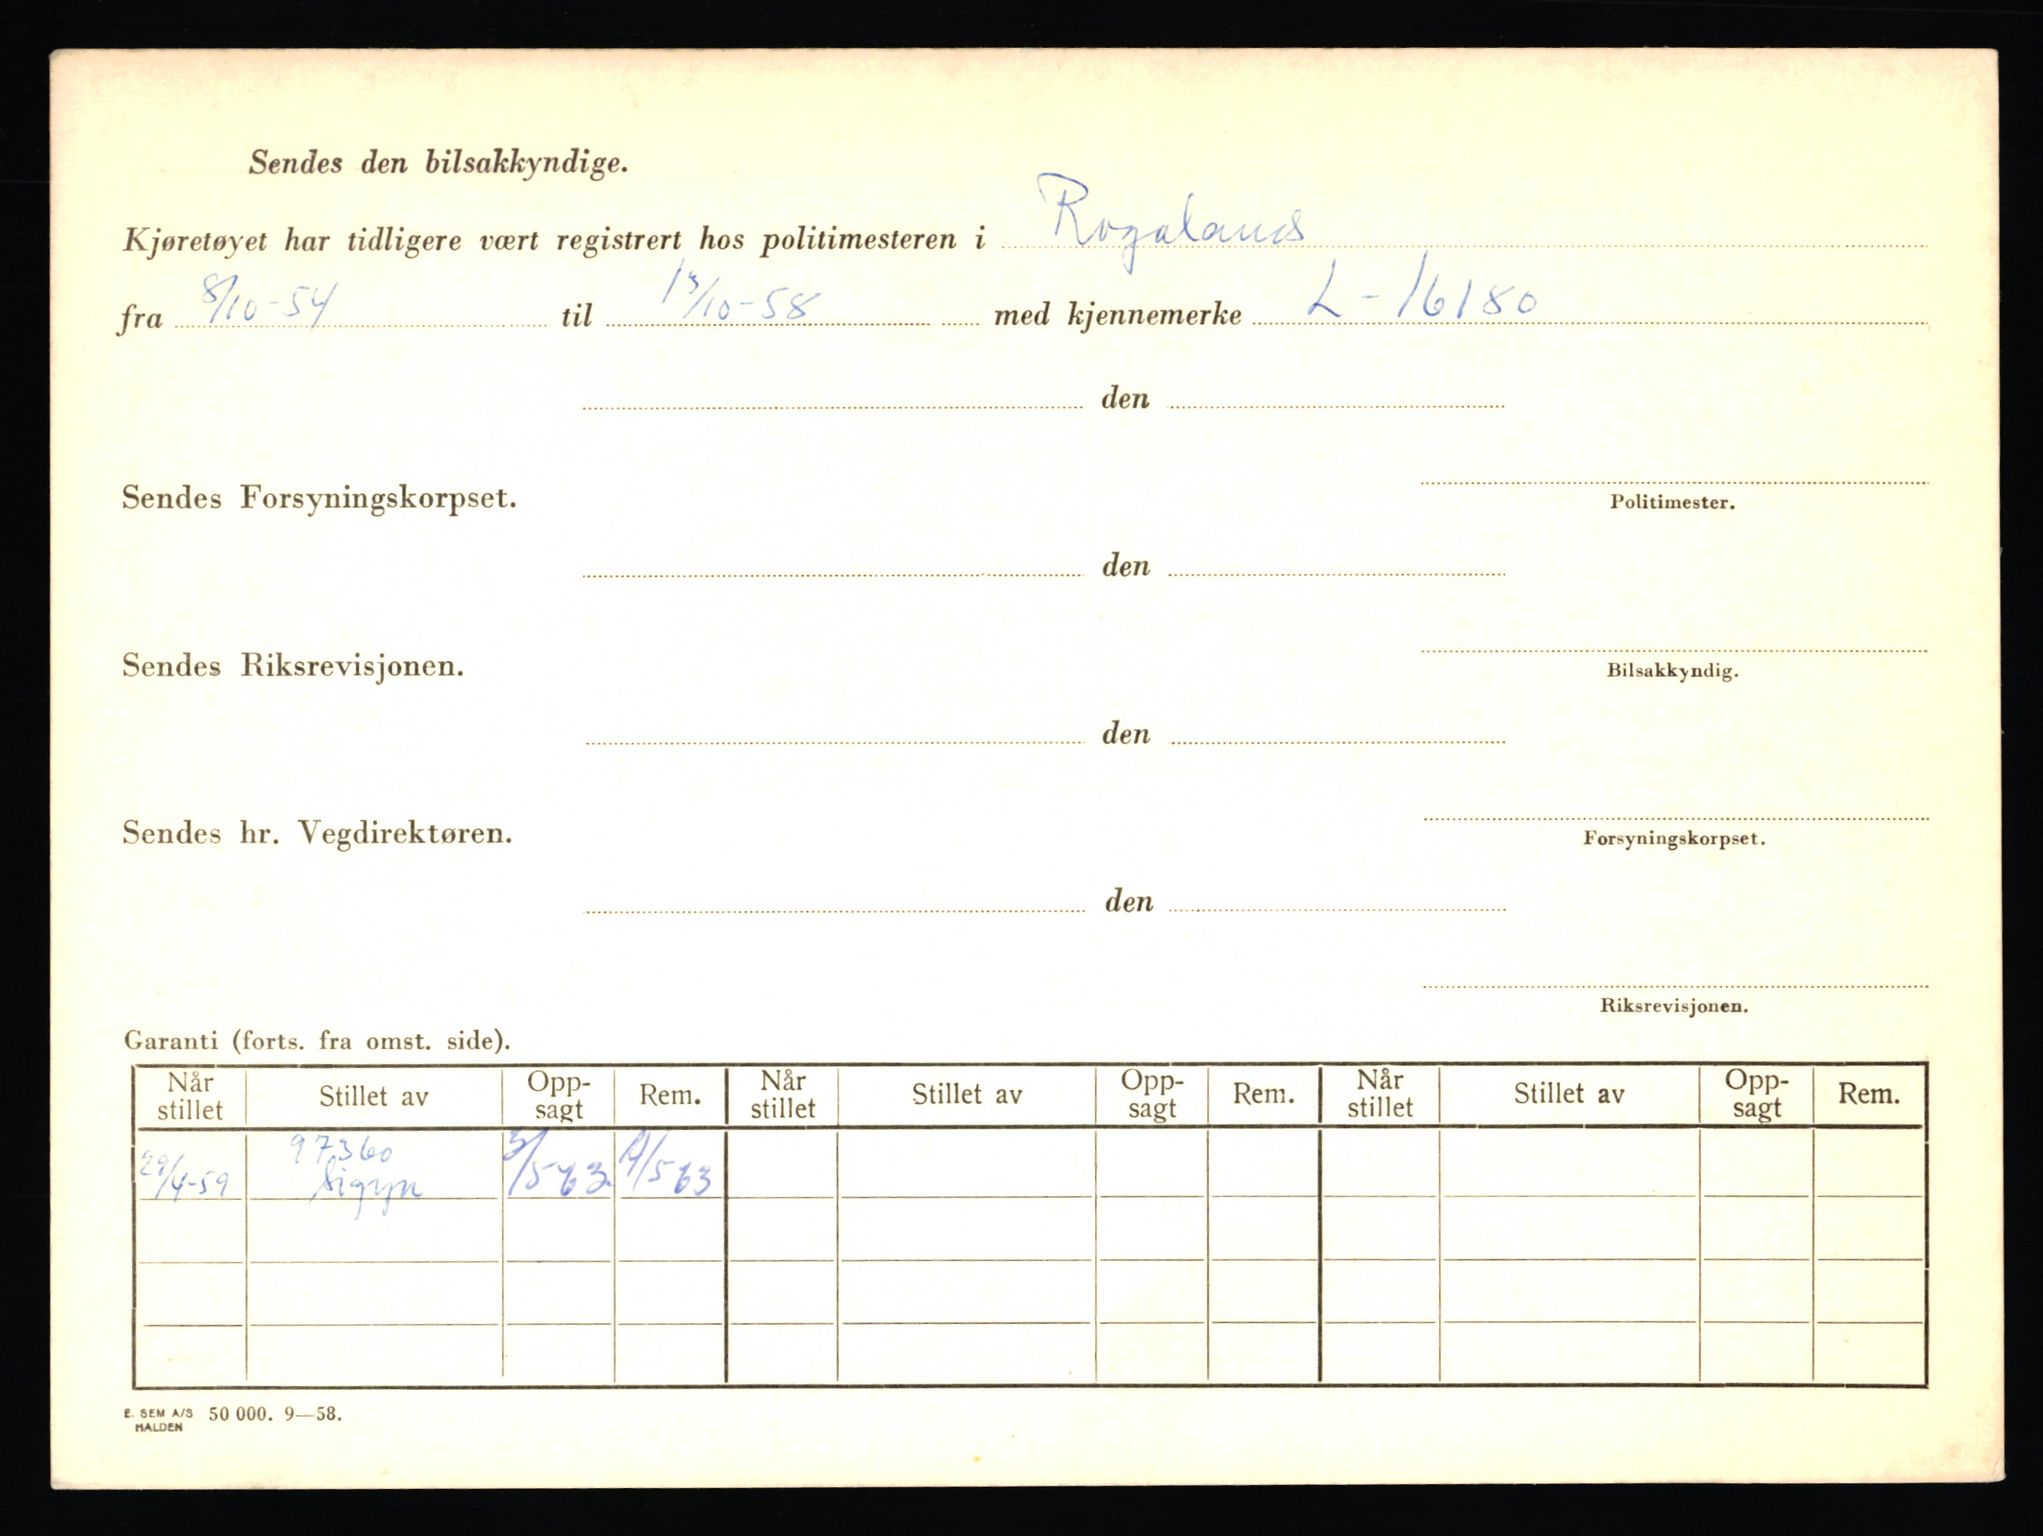 Sendes den bilsakkyndige.
Kjøretøyet har tidligere vært registrert hos politimesteren i Rogaland
fra 8/10-54 til 13/10-58 med kjennemerke L-16180
den
Sendes Forsyningskorpset.
Politimester.
den
Sendes Riksrevisjonen.
Bilsakkyndig.
den
Sendes hr. Vegdirektøren.
Forsyningskorpset.
den
Riksrevisjonen.
Garanti (forts. fra omst. side).
Når stillet Stillet av Opp-sagt Rem. Når stillet Stillet av Opp-sagt Rem. Når stillet Stillet av Opp-sagt Rem.
97360
29/4-59 Sigyn 3/5 63 /5 63
E. SEM A/S HALDEN 50 000. 9—58.